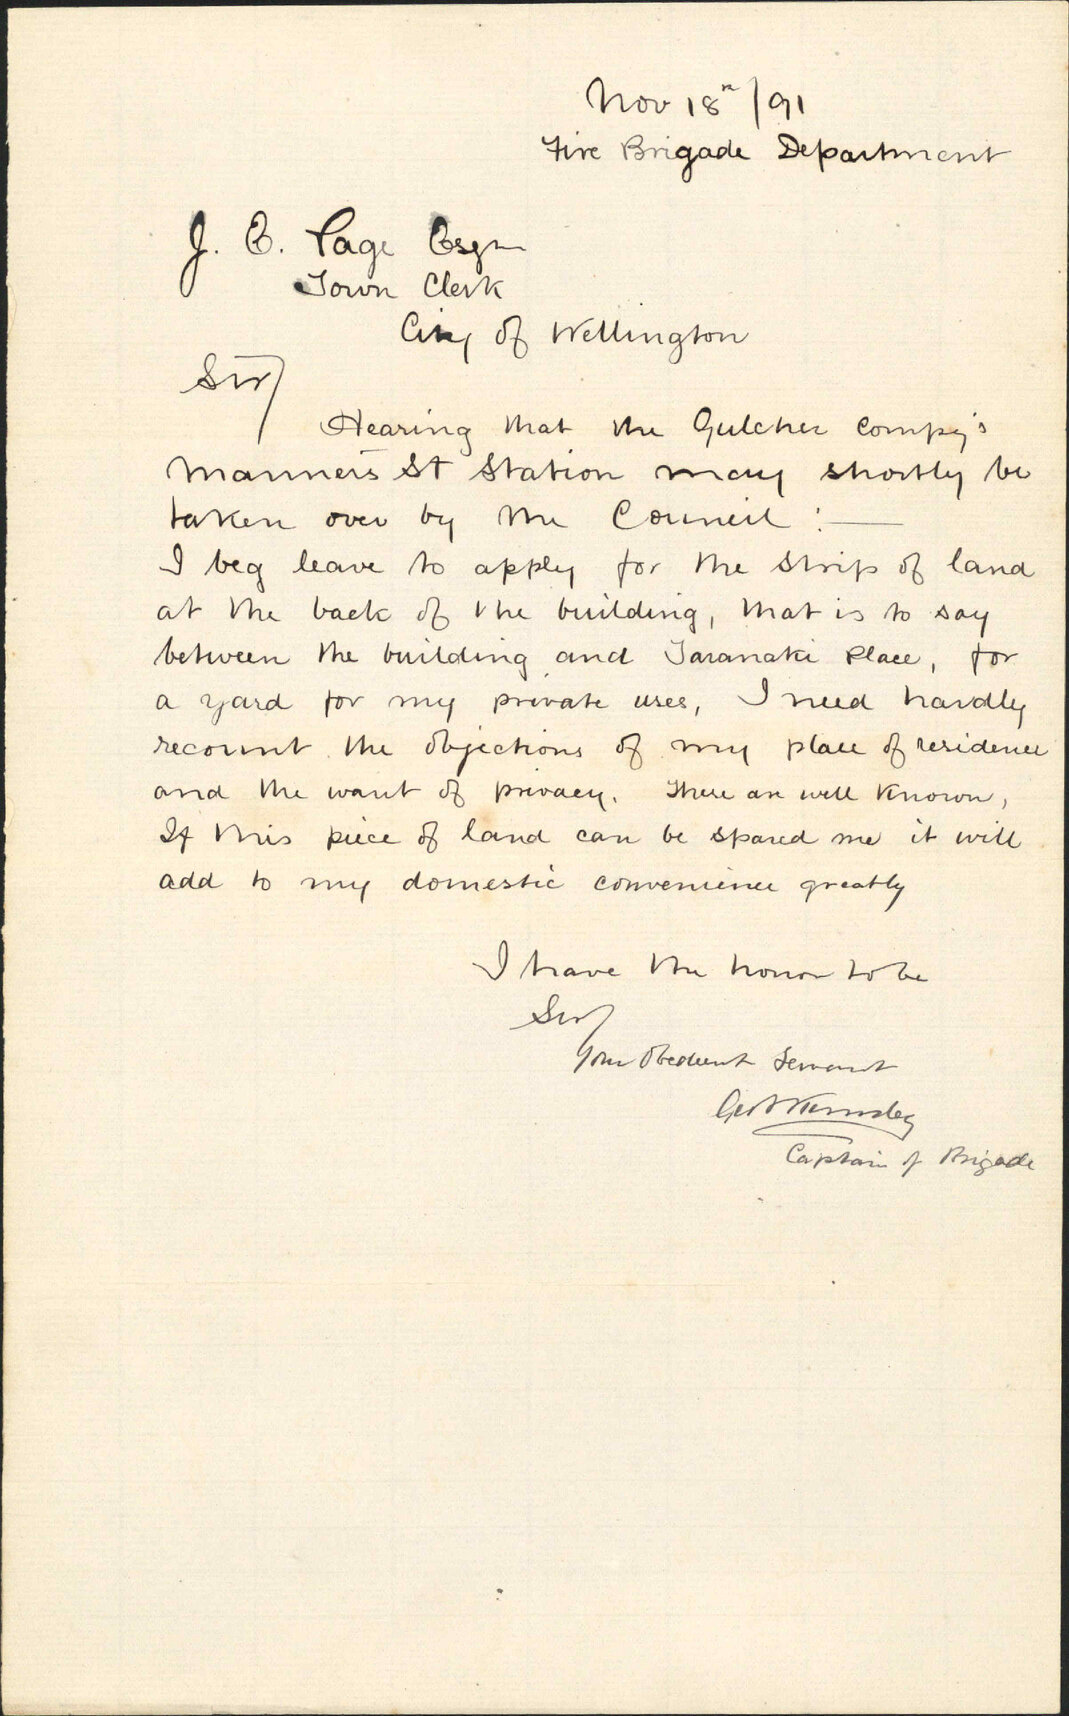 Nov 18th/91
Fire Brigade Department
J. E. Page Esqre
Town Clerk
City of Wellington
Sir/
Hearing that the Gulcher Compy's
Manners St Station may shortly be
taken over by the Council :—
I beg leave to apply for the strip of land
at the back of the building, that is to say
between the building and Taranaki Place, for
a yard for my private uses, I need hardly
recount the objections of my place of residence
and the want of privacy. These are well known,
If this piece of land can be spared me it will
add to my domestic convenience greatly
I have the honor to be
Sir/
Your Obedient Servant
Captain of Brigade